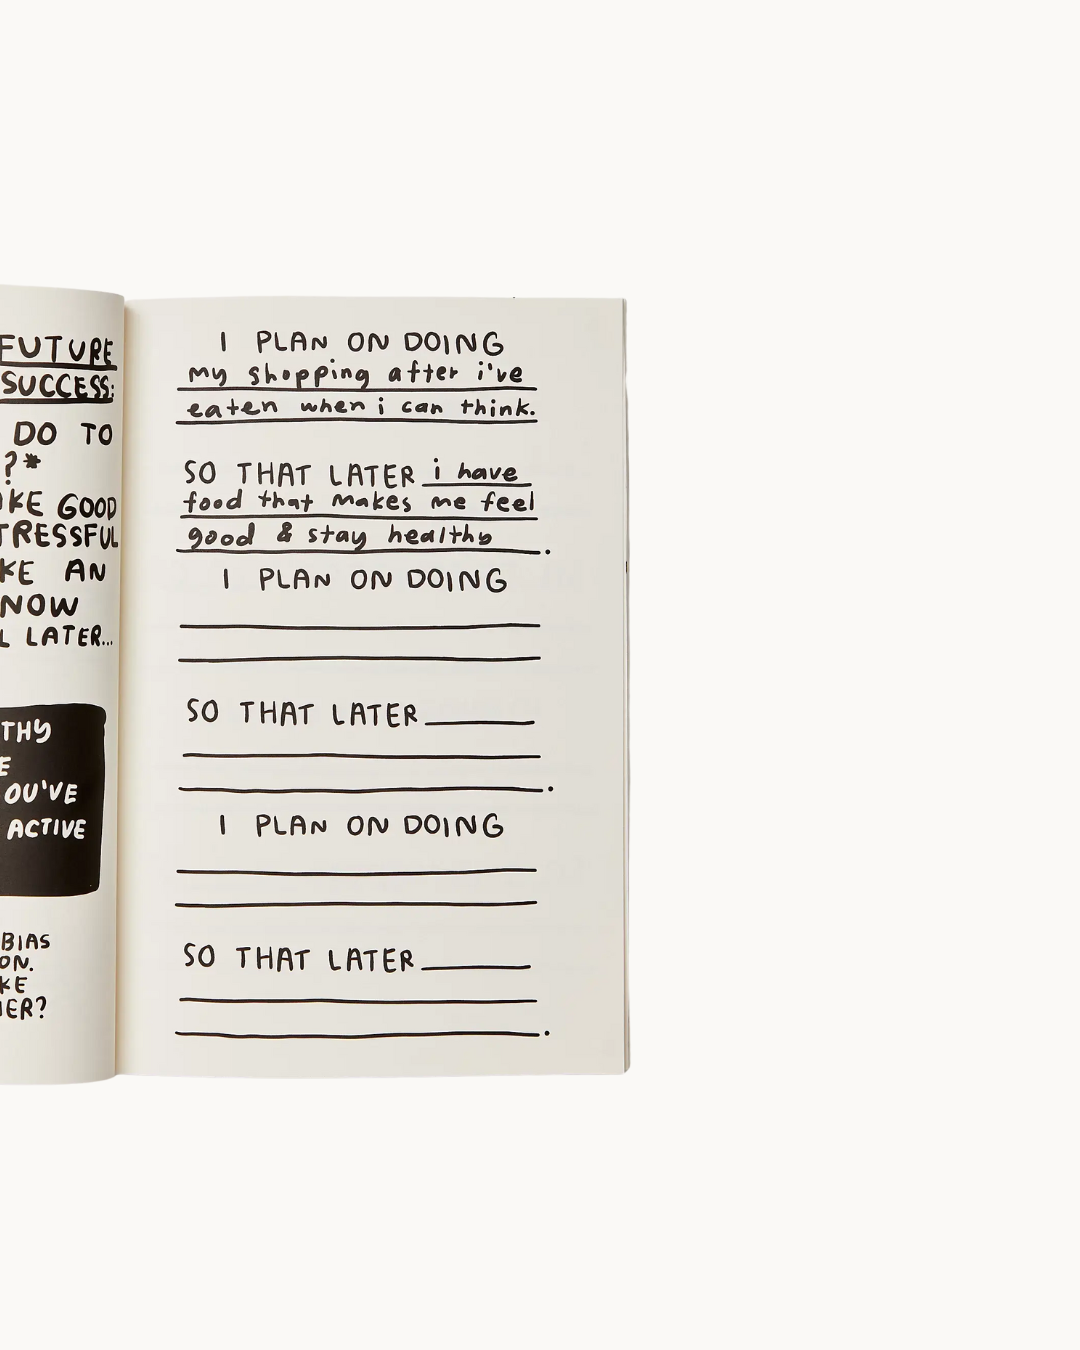 FUTURE
SUCCESS:
DO TO
?*
KE GOOD
TRESSFUL
KE AN
NOW
L LATER...
THY
E
OU'VE
ACTIVE
BIAS
ON.
KE
ER?
I PLAN ON DOING
my shopping after i've
eaten when i can think.
SO THAT LATER i have
food that makes me feel
good & stay healthy.
I PLAN ON DOING
SO THAT LATER
.
I PLAN ON DOING
SO THAT LATER
.